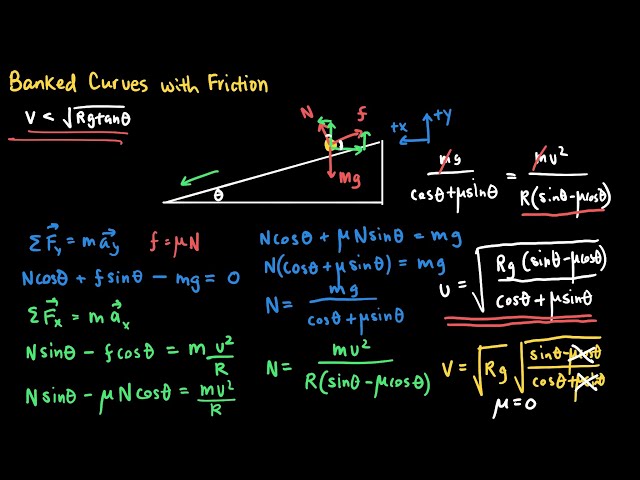 Banked Curves with Friction
V < √Rgtanθ
N
f
+y
+x
mg
θ
mg/(cosθ+μsinθ) = mv²/(R(sinθ-μcosθ))
ΣF⃗y = ma⃗y f = μN
Ncosθ + fsinθ - mg = 0
ΣF⃗x = ma⃗x
Nsinθ - fcosθ = m v²/R
Nsinθ - μNcosθ = mv²/R
Ncosθ + μNsinθ = mg
N(cosθ + μsinθ) = mg
N = mg/(cosθ + μsinθ)
N = mv²/(R(sinθ - μcosθ))
υ = √(Rg(sinθ-μcosθ)/(cosθ + μsinθ))
V = √Rg √((sinθ-μcosθ)/(cosθ+μsinθ))
μ = 0